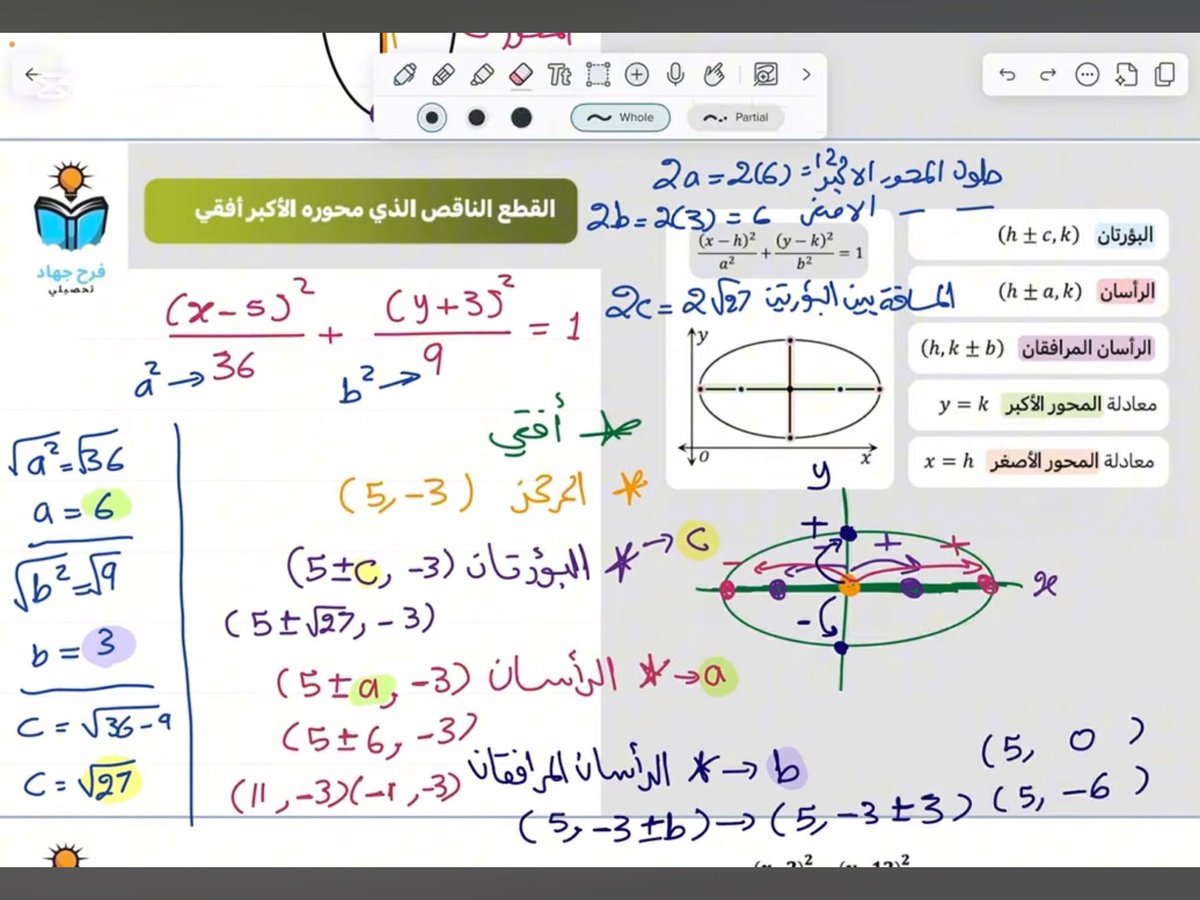 Whole
Partial
القطع الناقص الذي محوره الأكبر أفقي
فرح جهاد
تحصيلي
2a = 2(6) = 12 طول المحور الاكبر
2b = 2(3) = 6 — — الاصغر
(x – h)²/a² + (y – k)²/b² = 1
2c = 2√27 المسافة بين البؤرتين
البؤرتان (h ± c, k)
الرأسان (h ± a, k)
الرأسان المرافقان (h, k ± b)
معادلة المحور الأكبر y = k
معادلة المحور الأصغر x = h
y
O
x
(x-5)²/36 + (y+3)²/9 = 1
a² → 36
b² → 9
√a² = √36
a = 6
√b² = √9
b = 3
C = √36-9
C = √27
* أفقي
* المركز (5, -3)
* البؤرتان (5±c, -3) → C
(5±√27, -3)
* الرأسان (5±a, -3) → a
(5±6, -3)
(11, -3)(-1, -3)
* الرأسان المرافقان → b
(5, -3±b) → (5, -3±3)
(5, 0)
(5, -6)
y
x
+
- + +
-